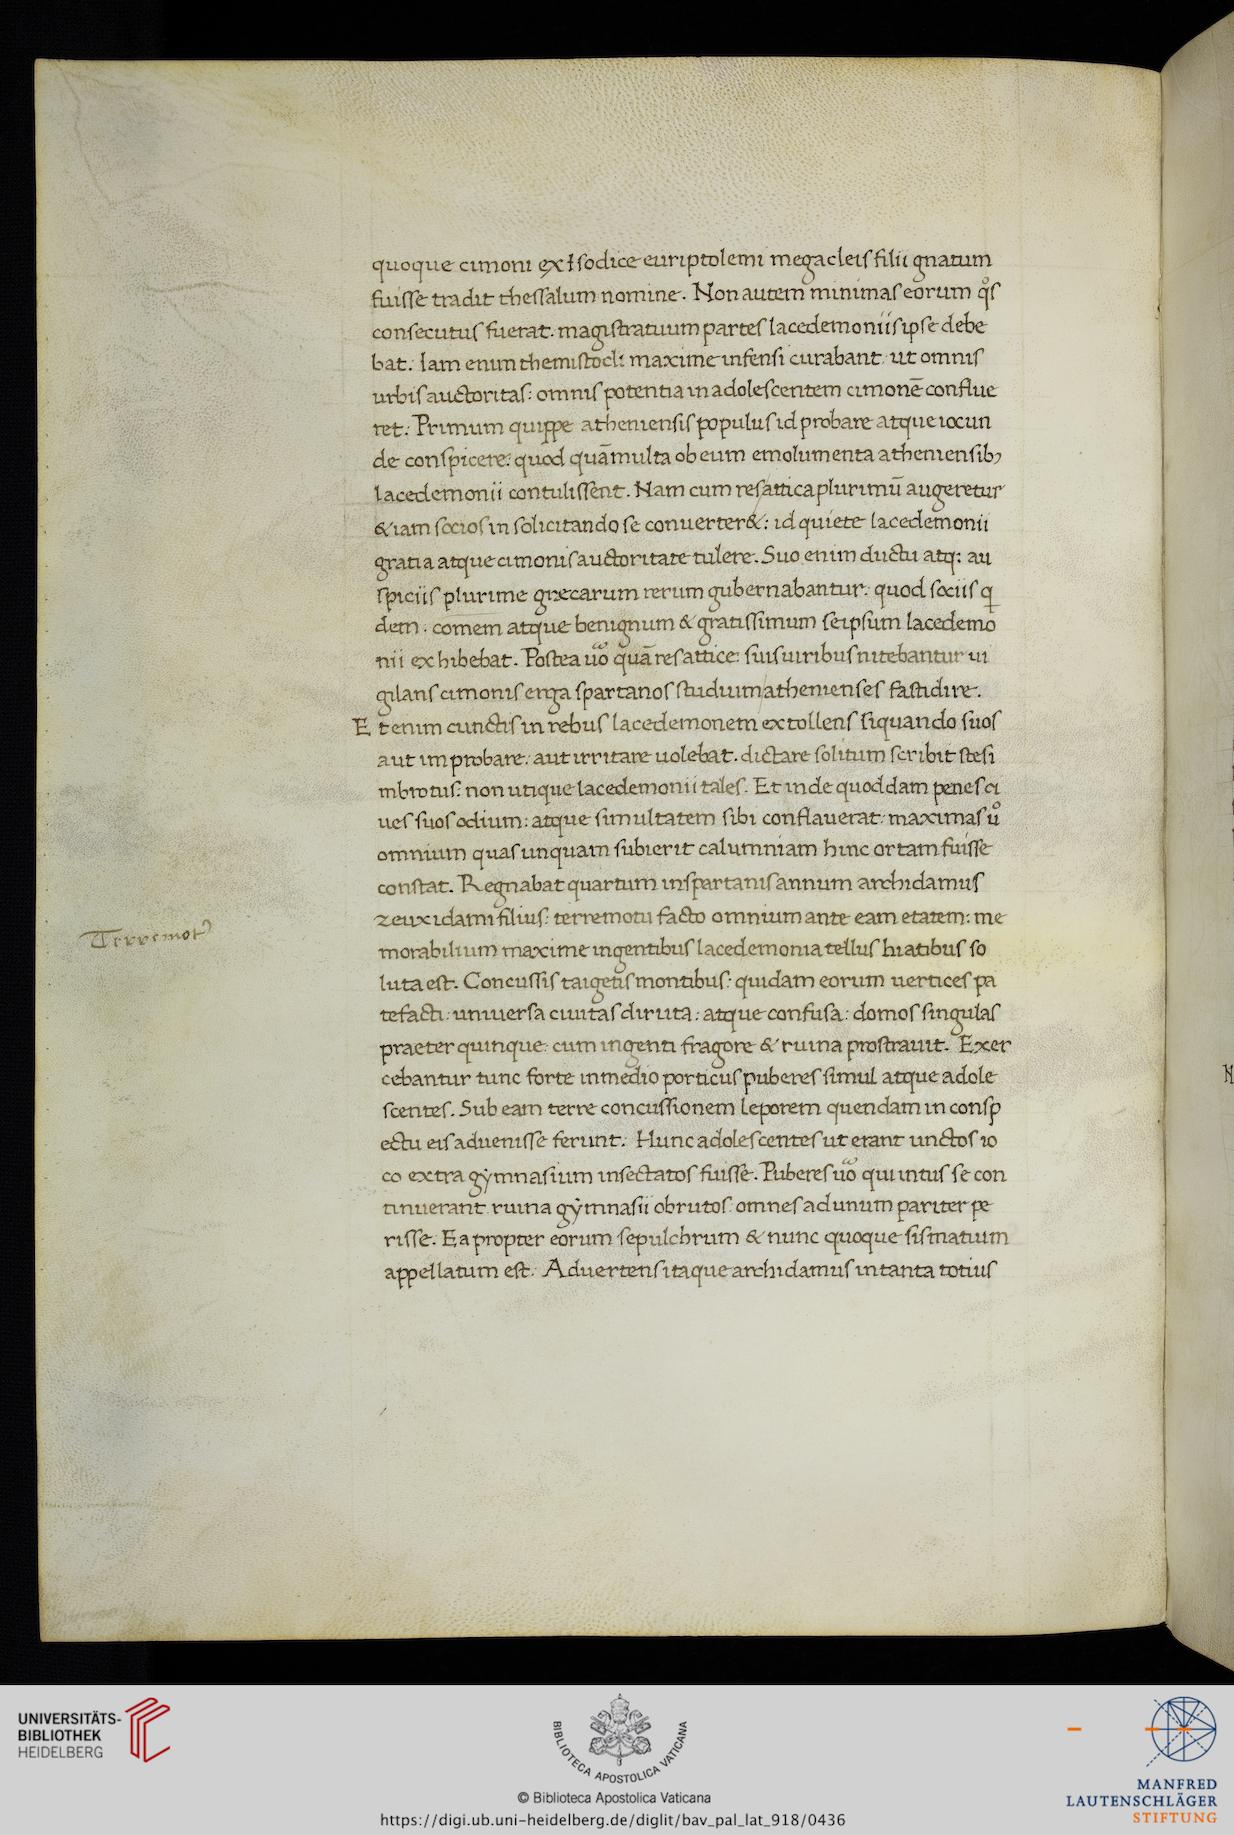 quoque cimoni ex Isodice euriptolemi megacleis filii gnatum
fuisse tradit thessalum nomine. Non autem minimas eorum q̊s
consecutus fuerat. magistratuum partes lacedemoniis ipse debe
bat. Iam enim themistocli maxime infensi curabant ut omnis
urbis auctoritas: omnis potentia in adolescentem cimonē conflue
ret: Primum quippe atheniensis populus id probare atque iocun
de conspicere: quod quā multa ob eum emolumenta atheniensibꝫ
lacedemonii contulissent. Nam cum res attica plurimū augeretur
& iam socios in solicitando se conuerter&: id quiete lacedemonii
gratia atque cimonis auctoritate tulere. Suo enim ductu atq: au
spiciis plurime grecarum rerum gubernabantur: quod sociis q
dem. comem atque benignum & gratissimum seipsum lacedemo
nii exhibebat. Postea uo quā res attice: suis uiribus nitebantur ui
gilans cimonis erga spartanos studium athenienses fastidire.
Etenim cunctis in rebus lacedemonem extollens siquando suos
aut improbare: aut irritare uolebat. dictare solitum scribit stesi
mbrotus: non utique lacedemonii tales. Et inde quoddam penes ci
ues suos odium: atque simultatem sibi conflauerat: maximas ů
omnium quas unquam subierit calumniam hinc ortam fuisse
constat. Regnabat quartum in spartanis annum archidamus
zeuxidami filius: terremotu facto omnium ante eam etatem: me
Terremotꝰ
morabilium maxime ingentibus lacedemonia tellus hiatibus so
luta est. Concussis taigetis montibus: quidam eorum uertices pa
tefacti: uniuersa ciuitas diruta: atque confusa: domos singulas
praeter quinque: cum ingenti fragore & ruina prostrauit. Exer
cebantur tunc forte in medio porticus puberes simul atque adole
scentes. Sub eam terre concussionem leporem quendam in consp
ectu eis aduenisse ferunt. Hunc adolescentes ut erant unctos io
co extra gymnasium insectatos fuisse. Puberes uo qui intus se con
tinuerant ruina gymnasii obrutos: omnes ad unum pariter pe
risse. Ea propter eorum sepulchrum & nunc quoque sismatium
appellatum est. Aduertens itaque archidamus in tanta totius
UNIVERSITÄTS-
BIBLIOTHEK
HEIDELBERG
BIBLIOTECA APOSTOLICA VATICANA
© Biblioteca Apostolica Vaticana
https://digi.ub.uni-heidelberg.de/diglit/bav_pal_lat_918/0436
MANFRED
LAUTENSCHLÄGER
STIFTUNG